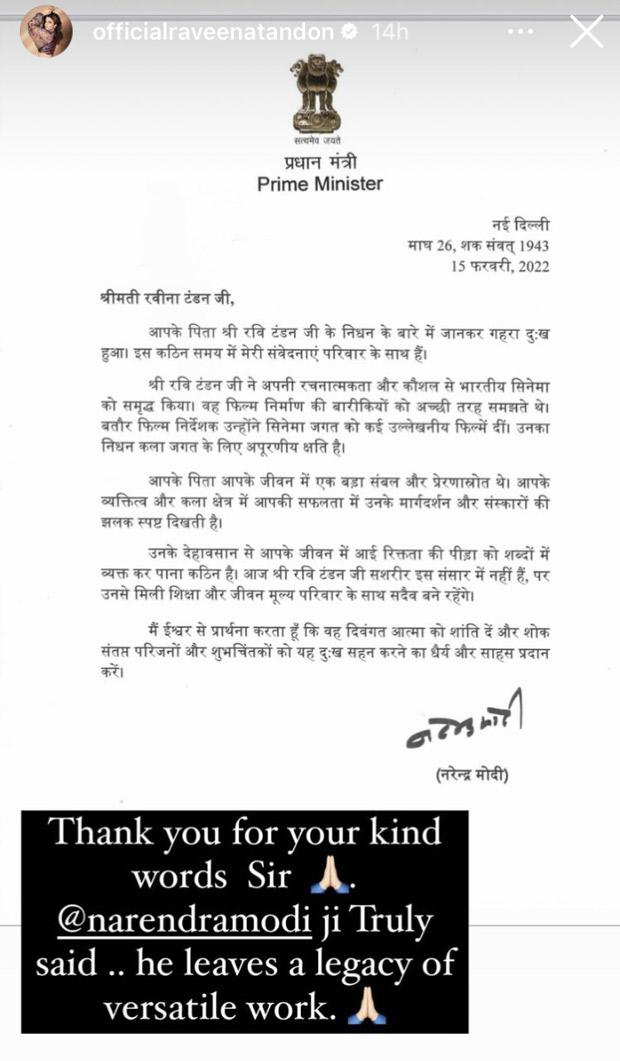 officialraveenatandon 14h
सत्यमेव जयते
प्रधान मंत्री
Prime Minister
नई दिल्ली
माघ 26, शक संवत् 1943
15 फरवरी, 2022
श्रीमती रवीना टंडन जी,
आपके पिता श्री रवि टंडन जी के निधन के बारे में जानकर गहरा दुःख
हुआ। इस कठिन समय में मेरी संवेदनाएं परिवार के साथ हैं।
श्री रवि टंडन जी ने अपनी रचनात्मकता और कौशल से भारतीय सिनेमा
को समृद्ध किया। वह फिल्म निर्माण की बारीकियों को अच्छी तरह समझते थे।
बतौर फिल्म निर्देशक उन्होंने सिनेमा जगत को कई उल्लेखनीय फिल्में दीं। उनका
निधन कला जगत के लिए अपूरणीय क्षति है।
आपके पिता आपके जीवन में एक बड़ा संबल और प्रेरणास्रोत थे। आपके
व्यक्तित्व और कला क्षेत्र में आपकी सफलता में उनके मार्गदर्शन और संस्कारों की
झलक स्पष्ट दिखती है।
उनके देहावसान से आपके जीवन में आई रिक्तता की पीड़ा को शब्दों में
व्यक्त कर पाना कठिन है। आज श्री रवि टंडन जी सशरीर इस संसार में नहीं हैं, पर
उनसे मिली शिक्षा और जीवन मूल्य परिवार के साथ सदैव बने रहेंगे।
मैं ईश्वर से प्रार्थना करता हूँ कि वह दिवंगत आत्मा को शांति दें और शोक
संतप्त परिजनों और शुभचिंतकों को यह दुःख सहन करने का धैर्य और साहस प्रदान
करें।
नरेन्द्र मोदी
(नरेन्द्र मोदी)
Thank you for your kind
words Sir 🙏🏻.
@narendramodi ji Truly
said .. he leaves a legacy of
versatile work. 🙏🏻